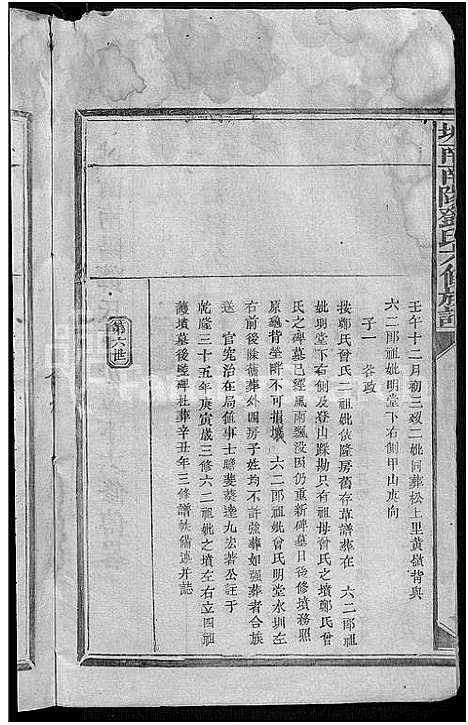 南陽鄧氏六修族譜
壬午十二月初三歿二妣同葬松上里黃嶺背與
六二郎祖妣明堂下右側甲山庚向
子一 容政
按鄭氏曾氏二祖妣依隆房舊存草譜葬在 六二郎祖
妣明堂下右側及登山踩勘只有祖母曾氏之墳鄭氏曾
氏之碑墓已經風雨飄沒因仍重新碑墓日後修墳務照
原龜背塋唇不可損壞 六二郎祖妣曾氏明堂水圳左
右前後除舊葬外四房子姓均不許強葬如強葬者合族
送 官究治在局值事士瞻斐葵達九宏著公註于
乾隆三十五年庚寅歲三修六二祖妣之墳左右立四祖
護墳墓後豎碑杜葬辛丑年三修譜帙備述并誌
第六世